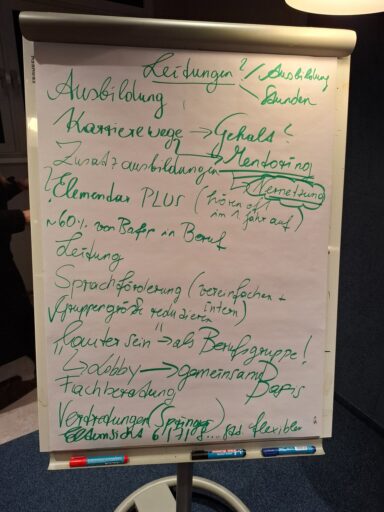 Leitungen? / Ausbildung
Stunden
Ausbildung
Karrierewege → Gehalt?
Zusatzausbildungen → Mentoring
Vernetzung
? Elementar PLUS (hören oft
im 1 Jahr auf)
~60% von Bafis in Beruf
Leitung
Sprachförderung (vereinfachen +
intern)
√ Gruppengröße reduzieren
"lauter sein" → als Berufsgruppe!
↳ Lobby → gemeinsam
Bafis
Fachberatung
Vertretungen (Springer
flexibler